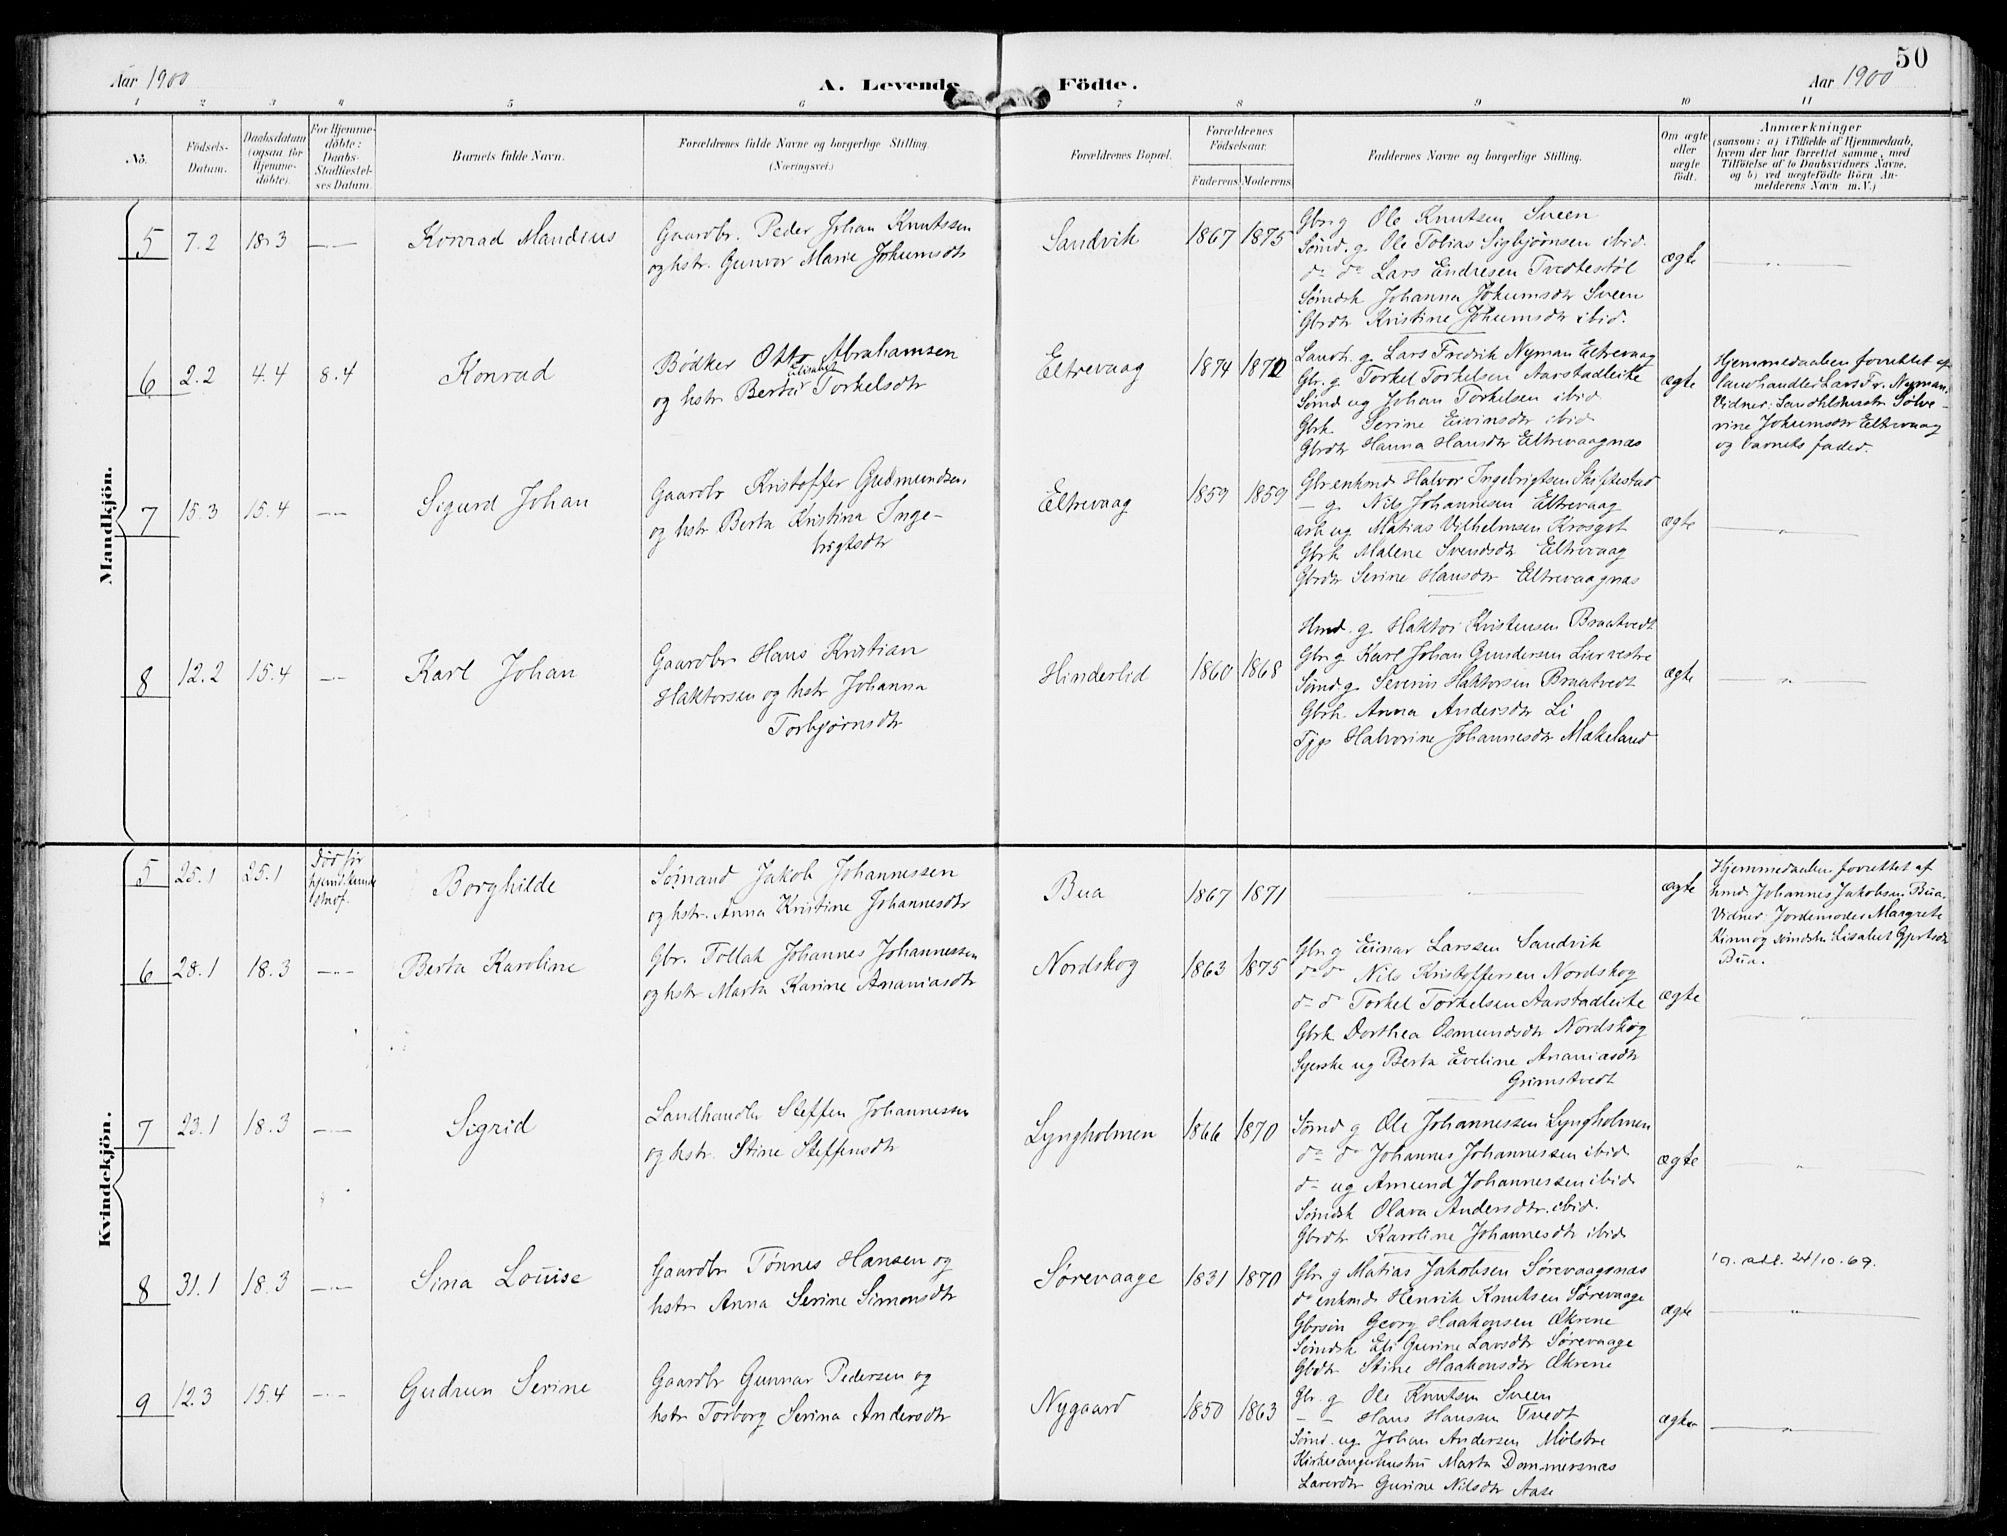 50
Aar 1900
A. Levende Födte.
Aar 1900
1 2 3 4 5 6 7 8 9 10 11
No.
Födsels-Datum.
Daabsdatum (ogsaa for Hjemme-döbte).
For Hjemme-döbte: Daabs-Stadfæstel-ses Datum.
Barnets fulde Navn.
Forældrenes fulde Navne og borgerlige Stilling.
(Næringsvei.)
Forældrenes Bopæl.
Forældrenes Födselsaar.
Faderens Moderens
Faddernes Navne og borgerlige Stilling.
Om ægte eller uægte födt.
Anmærkninger
(saasom: a) i Tilfælde af Hjemmedaab,
hvem der har forrettet samme, med
Tilföielse af to Daabsvidners Navne,
og b) ved uægtefödte Börn An-
melderens Navn m.V.)
Mandkjön.
5 7.2 18.3 —"— Konrad Mandius
Gaardbr. Peder Johan Knutssen
og hstr. Gunvor Marie Johumsdtr
Sandvik 1867 1875
Gbr g Ole Knutsen Sveen
Sømd. g. Ole Tobias Sigbjørnsen ibid.
do do Lars Endresen Tvedtestøl
Sømdsk Johanna Johumsdtr Sveen
Gbrdtr Kristine Johumsdtr ibid.
ægte —"—
6 2.2 4.4 8.4 Konrad
Bødker Otto Abrahamsen
Elisabet
og hstr Berta Torkelsdtr
Eltrevaag 1874 1872
Landh. g. Lars Fredrik Nyman Eltrevaag
Gbr. g Torkel Torkelsen Aarstadleite
Sømd ug Johan Torkelsen ibid
Gbrk Serine Eivinsdtr ibid
Gbrdtr Hanna Hansdtr Eltrevaagnæs
ægte
Hjemmedaaben forrettet af
landhandler Lars Fr. Nyman.
Vidner: Landhlshustr Sølve-
rine Johumsdtr Eltrevaag
og barnets fader.
7 15.3 15.4 —"— Sigurd Johan
Gaardbr Kristoffer Gudmundsen
og hstr Berta Kristina Inge-
brigtsdtr
Eltrevaag 1859 1859
Gbr enkmd Halvor Ingebrigtsen Skiftestad
— g. Nils Johannesen Eltrevaag
arb ug Matias Vilhelmsen Krosgot
Gbrk Malene Svendsdtr Eltrevaag
Gbrdtr Serine Hansdtr Eltrevaagnæs
ægte —"—
8 12.2 15.4 —"— Karl Johan
Gaardbr Hans Kristian
Haktorsen og hstr Johanna
Torbjørnsdtr
Hinderlid 1860 1868
Hmd. g. Haktor Kristensen Braatvedt
Gbr g Karl Johan Gundersen Liervestre
Sømd. g. Severin Haktorsen Braatvedt
Gbrk. Anna Andersdtr Li
Tjgp Halvorine Johannesdtr Makeland
ægte —"—
Kvindekjön.
5 25.1 25.1 Død før Borghilde
Sømand Jakob Johannessen
og hstr. Anna Kristine Johannesdtr
Bua 1867 1871 — ægte
Hjemmedaaben forrettet af
hmd. Johannes Jakobsen Bua.
Vidner: Jordemoder Margrete
Kinn og sømdsk Lisabet
Bua.
6 28.1 18.3 —"— Berta Karoline
Gbr. Tollak Johannes Johannessen
og hstr Marta Karine Ananiasdtr
Nordskog 1863 1875
Gbr g Einar Larssen Sandvik
do do Nils Kristoffersen Nordskog
do do Torkel Torkelsen Aarstadleite
Gbrk Dorthea Osmundsdtr Nordskog
Syerske ug Berta Eveline Ananiasdtr
Grimstvedt
ægte —"—
7 23.1 18.3 —"— Sigrid
Landhandler Steffen Johannessen
og hstr. Stine Steffensdtr
Lyngholmen 1866 1870
Sømd g Ole Johannessen Lyngholmen
do do Johannes Johannessen ibid
do ug Amund Johannessen ibid
Sømdsk Olava Andersdtr. ibid.
Gbrdtr Karoline Johannesdtr ibid
ægte —"—
8 31.1 18.3 —"— Sina Louise
Gaardbr Tønnes Hansen og
hstr Anna Serine Simonsdtr
Sørevaage 1831 1870
Gbr g Matias Jakobsen Sørevaagsnæs
do enkmd Henrik Knutsen Sørevaage
Gbrsøn Georg Haakonsen Økrene
Sømdsk Eli Gurine Larsdtr Sørevaage
Gbdtr Stine Haakonsdtr Økrene
ægte
24/10.69.
—"—
9 12.3 15.4 —"— Gudrun Serine
Gaardbr Gunnar Pedersen og
hstr Torborg Serina Andersdtr
Nygaard 1850 1863
Gbr. g Ole Knutsen Sveen
— — Hans Hanssen Tvedt
Sømd. ug Johan Andersen Mølstre
Kirkesangerhustru Marta Dommersnæs
Lærerdtr Gurine Nilsdtr Aase
ægte —"—